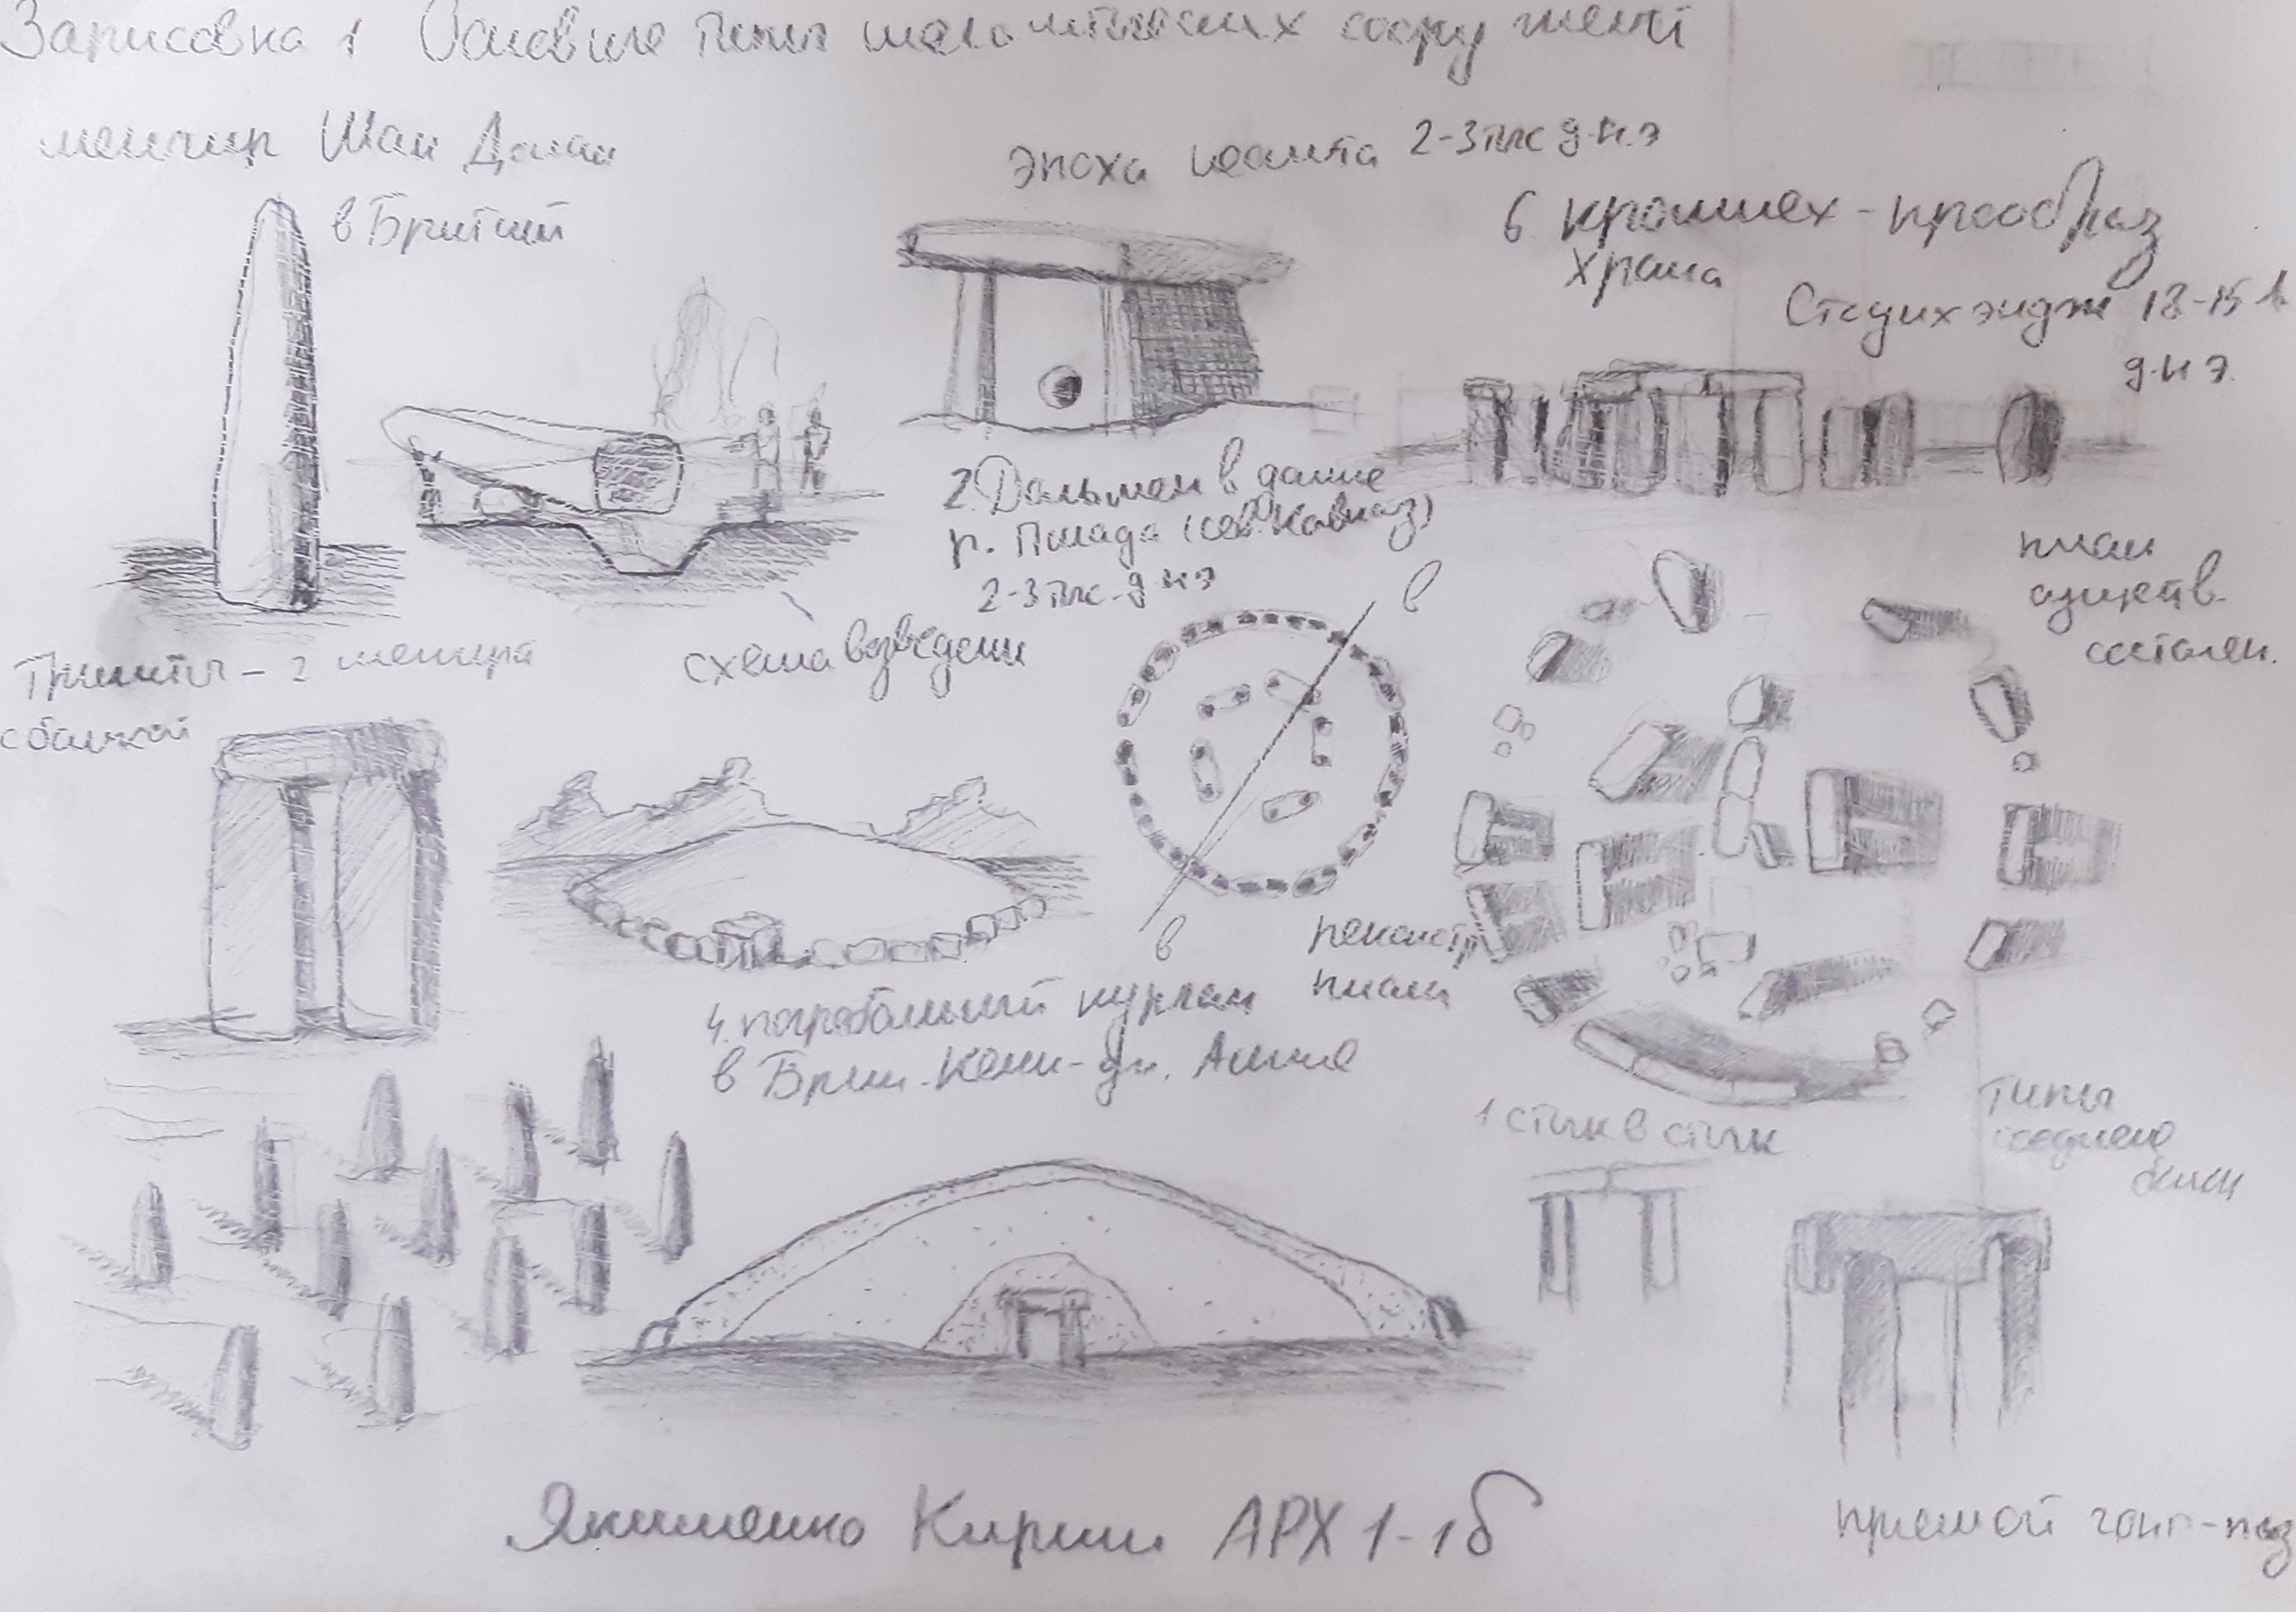 Зарисовка 1 Основные типы мегалитических сооружений
менгир Шан Долан
в Бретани
эпоха неолита 2-3 тыс д.н.э
6 кромлех - прообраз
храма
Стоунхэндж 18-15 в
д.н э.
2. Дольмен в долине
р. Пшада (сев. Кавказ)
2-3 тыс. д н э
схема возведени
план
существ.
состояен.
Трилиты - 2 менгира
с балкой
в
в
реконстр
плана
4. погребальный курган
в Брин-Кели-ди. Англие
1 стык в стык
типы
соединен
балки
прямой шип-паз
Якименко Кирилл АРХ 1-1б